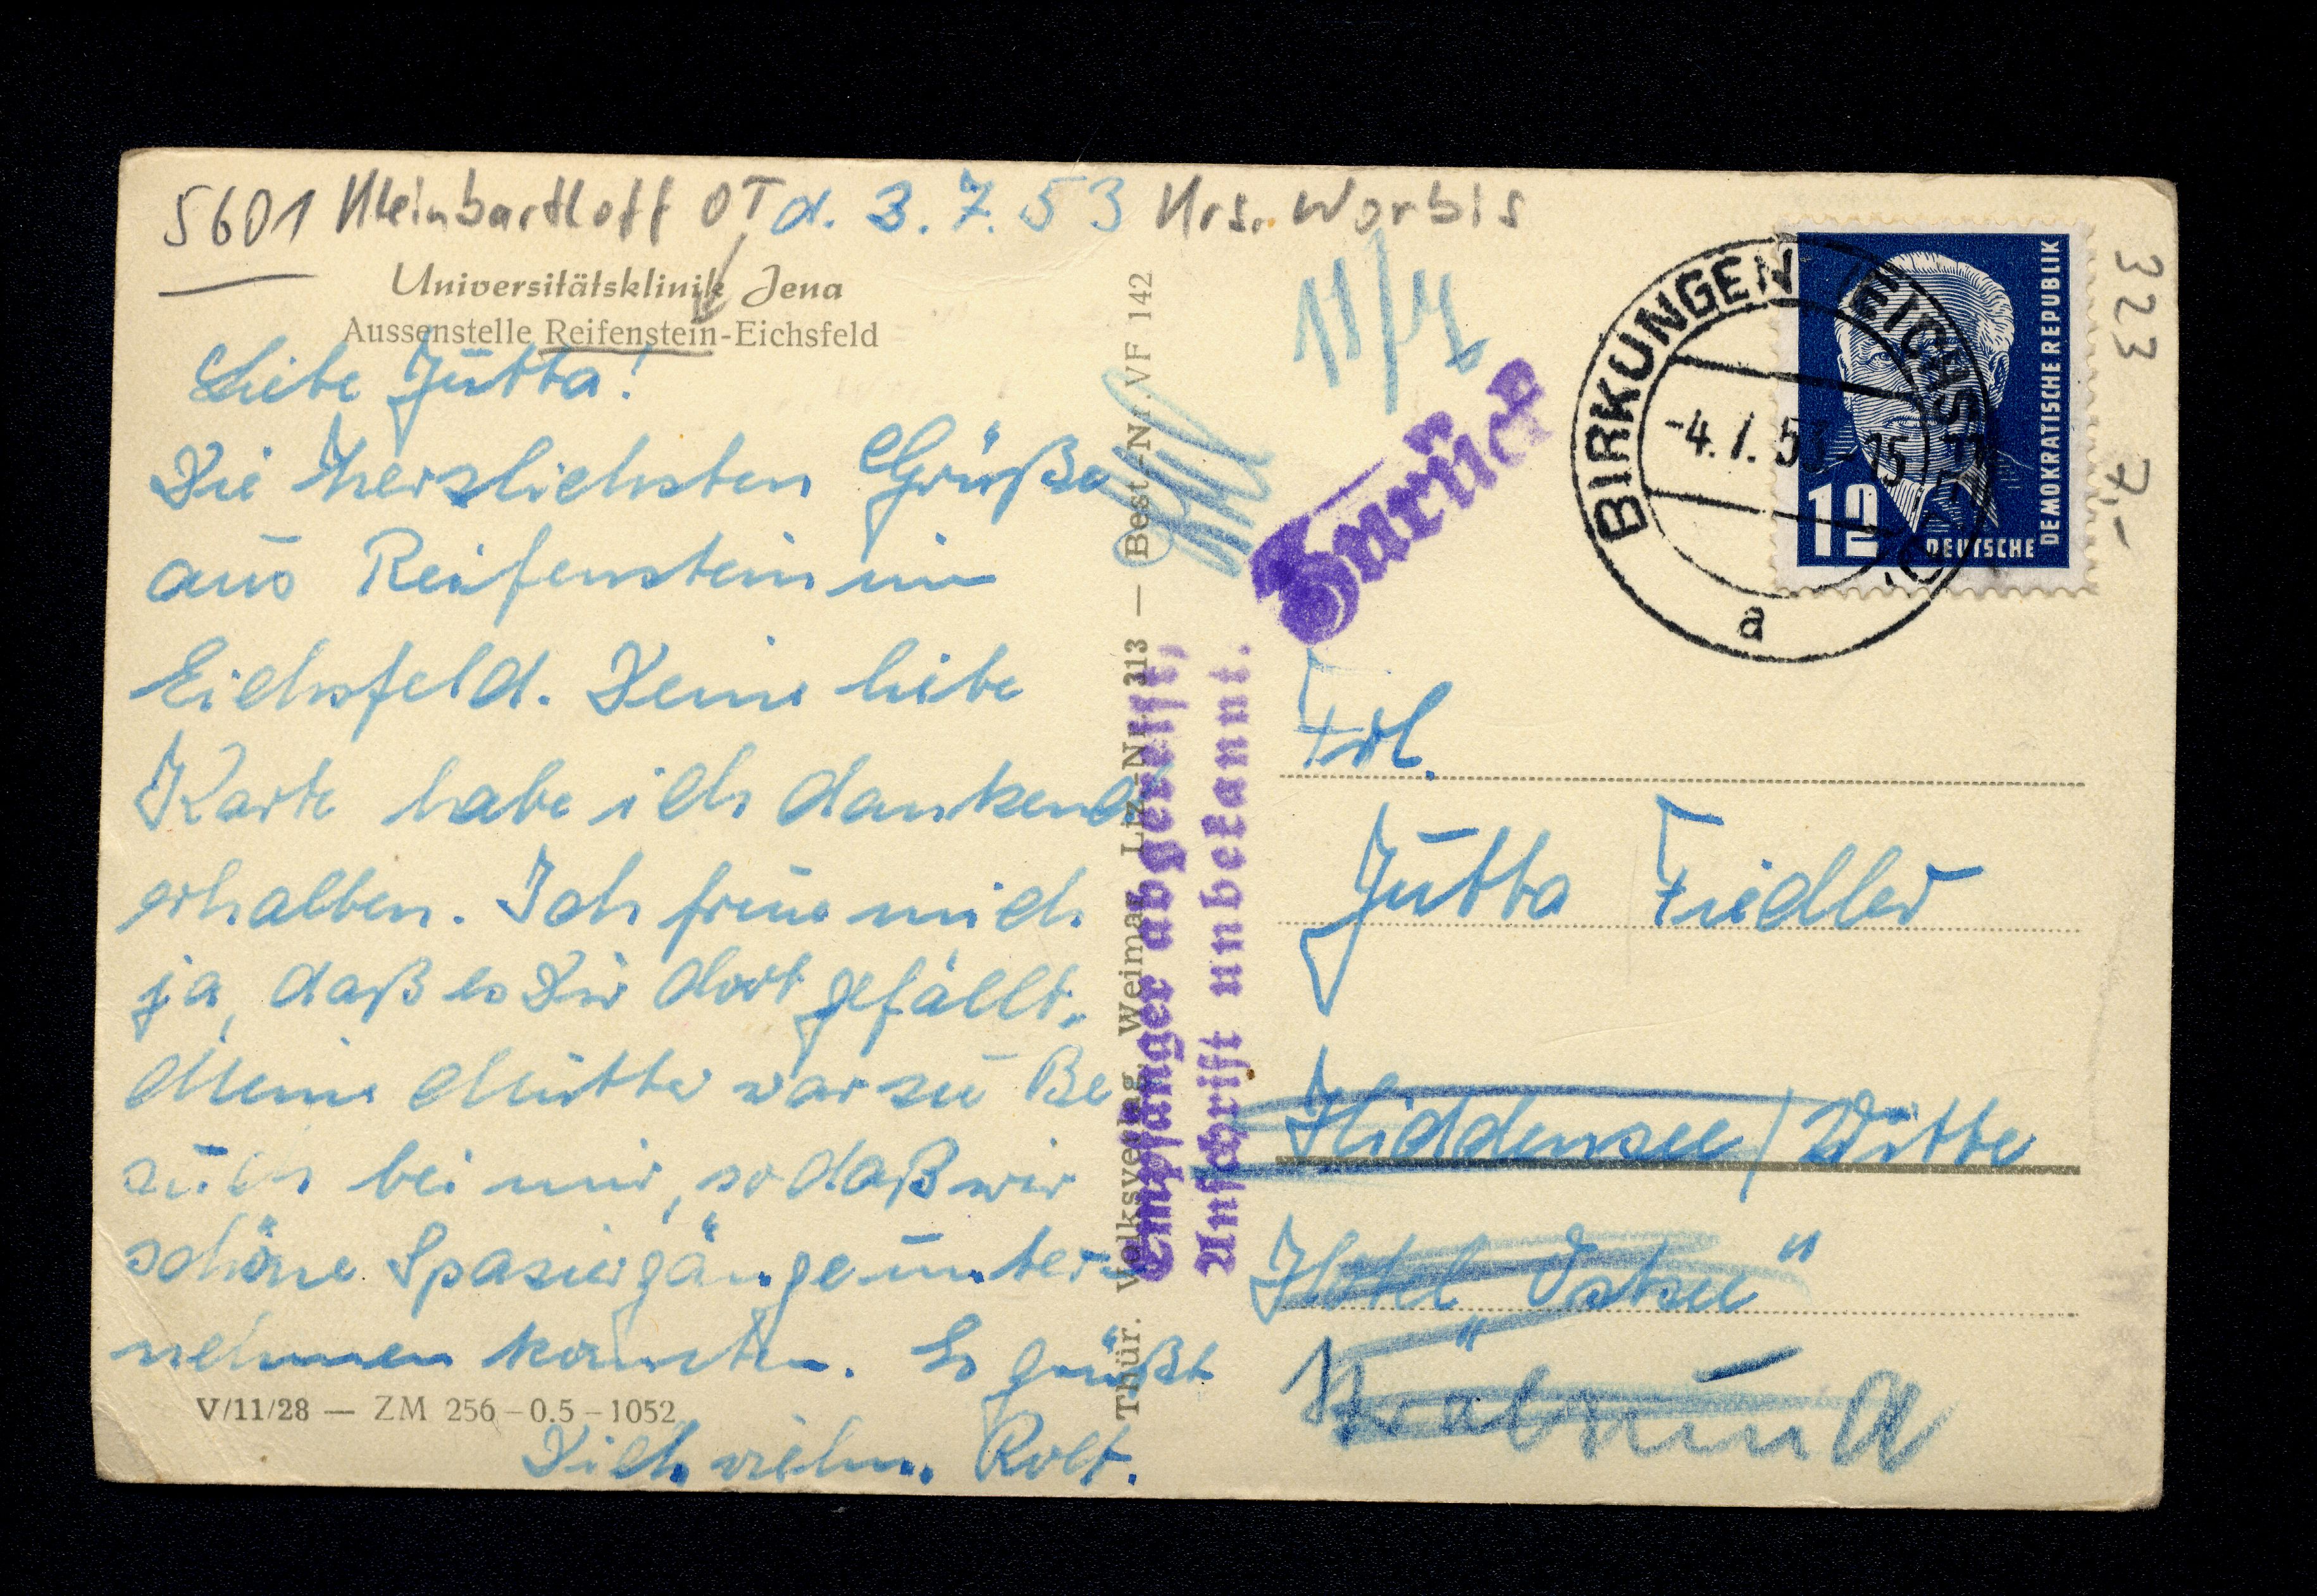 5601 Kleinbartloff OT d. 3.7.53 Krs. Worbis
Universitätsklinik Jena
Aussenstelle Reifenstein-Eichsfeld
Liebe Jutta!
Die herzlichsten Grüße
aus Reifenstein im
Eichsfeld. Deine liebe
Karte habe ich dankend
erhalten. Ich freue mich
ja, daß es Dir dort gefällt.
Meine Mutter war zu Be
such bei mir, so daß wir
schöne Spaziergänge unter-
nehmen konnten. Es grüßt
V/11/28 — ZM 256-0.5-1052
Dich vielm. Rolf.
Thür. Volksverlag, Weimar Liz.-Nr. 313 — Best.-Nr. VF 142
Empfänger abgereist,
Anschrift unbekannt.
Zurück
11/7
BIRKUNGEN (EICHSF.)
-4.7.53.-15
a
12
DEUTSCHE
DEMOKRATISCHE REPUBLIK
323
7,-
Frl.
Jutta Fiedler
Hiddensee / Vitte
Hotel "Ostsee"